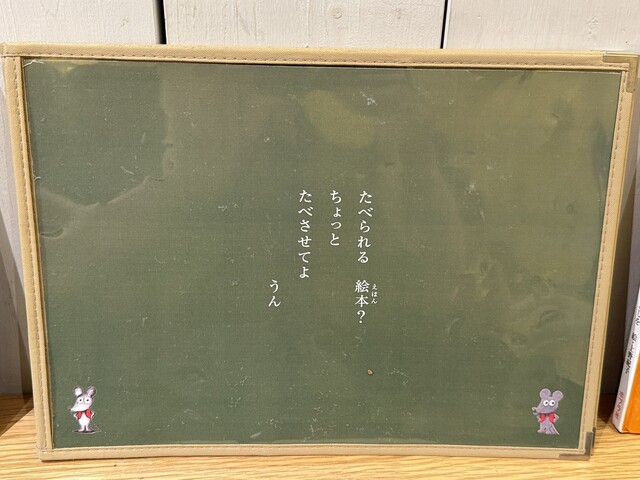 たべられる　絵本？
ちょっと
たべさせてよ
うん